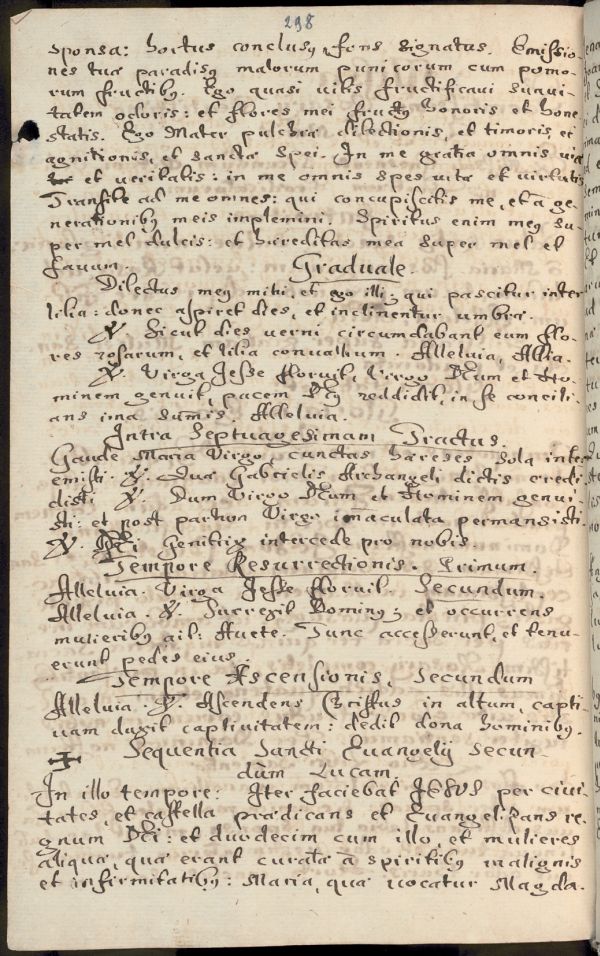 298
sponsa: hortus conclusꝰ, fons signatus. Emissio-
nes tuæ paradisꝰ malorum punicorum cum pomo-
rum fructibꝰ. Ego quasi vitis fructificaui suaui-
tatem odoris: et flores mei fructꝰ honoris et hone
statis. Ego Mater pulchræ dilectionis, et timoris, et
agnitionis, et sanctæ spei. In me gratia omnis uiæ
et ueritatis: in me omnis spes uitæ et virtutis
Transite ad me omnes: qui concupiscitis me, et à ge-
nerationibꝰ meis implemini. Spiritus enim meꝰ su-
per mel dulcis: et hæreditas mea super mel et
fauum. Graduale.
Dilectus meꝰ mihi, et ego illi; qui pascitur inter
lilia: donec aspiret dies, et inclinentur umbræ.
℣. Sicut dies uerni circumdabant eum flo-
res rosarum, et lilia conuallium. Alleluia, Allia.
℣. Virga Jesse floruit, Virgo Deum et Ho-
minem genuit, pacem Deꝰ reddidit, in se concili-
ans ima sumis. Alleluia.
Intra Septuagesimam Tractus.
Gaude Maria Virgo, cunctas hæreses sola inter
emisti. ℣. Quæ Gabrielis Archangeli dictis credi
disti ℣. Dum Virgo Deum et Hominem genui-
sti: et post partum Virgo imaculata permansisti.
℣. Dei Genitrix intercede pro nobis.
Tempore Resurrectionis. Primum.
Alleluia. Virga Jesse floruit. Secundum.
Alleluia. ℣. Surrexit Dominꝰ; et occurrens
mulieribꝰ ait: Auete. Tunc accesserunt, et tenu-
erunt pedes eius.
Tempore Ascensionis, Secundum
Alleluia. ℣. Ascendens Christus in altum, capti-
uam duxit captiuitatem: dedit dona hominibꝰ.
✠ Sequentia Sancti Euangelij secun-
dùm Lucam.
In illo tempore: Iter faciebat IESUS per ciui-
tates, et castella prædicans et Euangelizans re-
gnum Dei: et duodecim cum illo, et mulieres
aliquæ, quæ erant curatæ à spiritibꝰ malignis
et infirmitatibꝰ: Maria, quæ uocatur Magda-